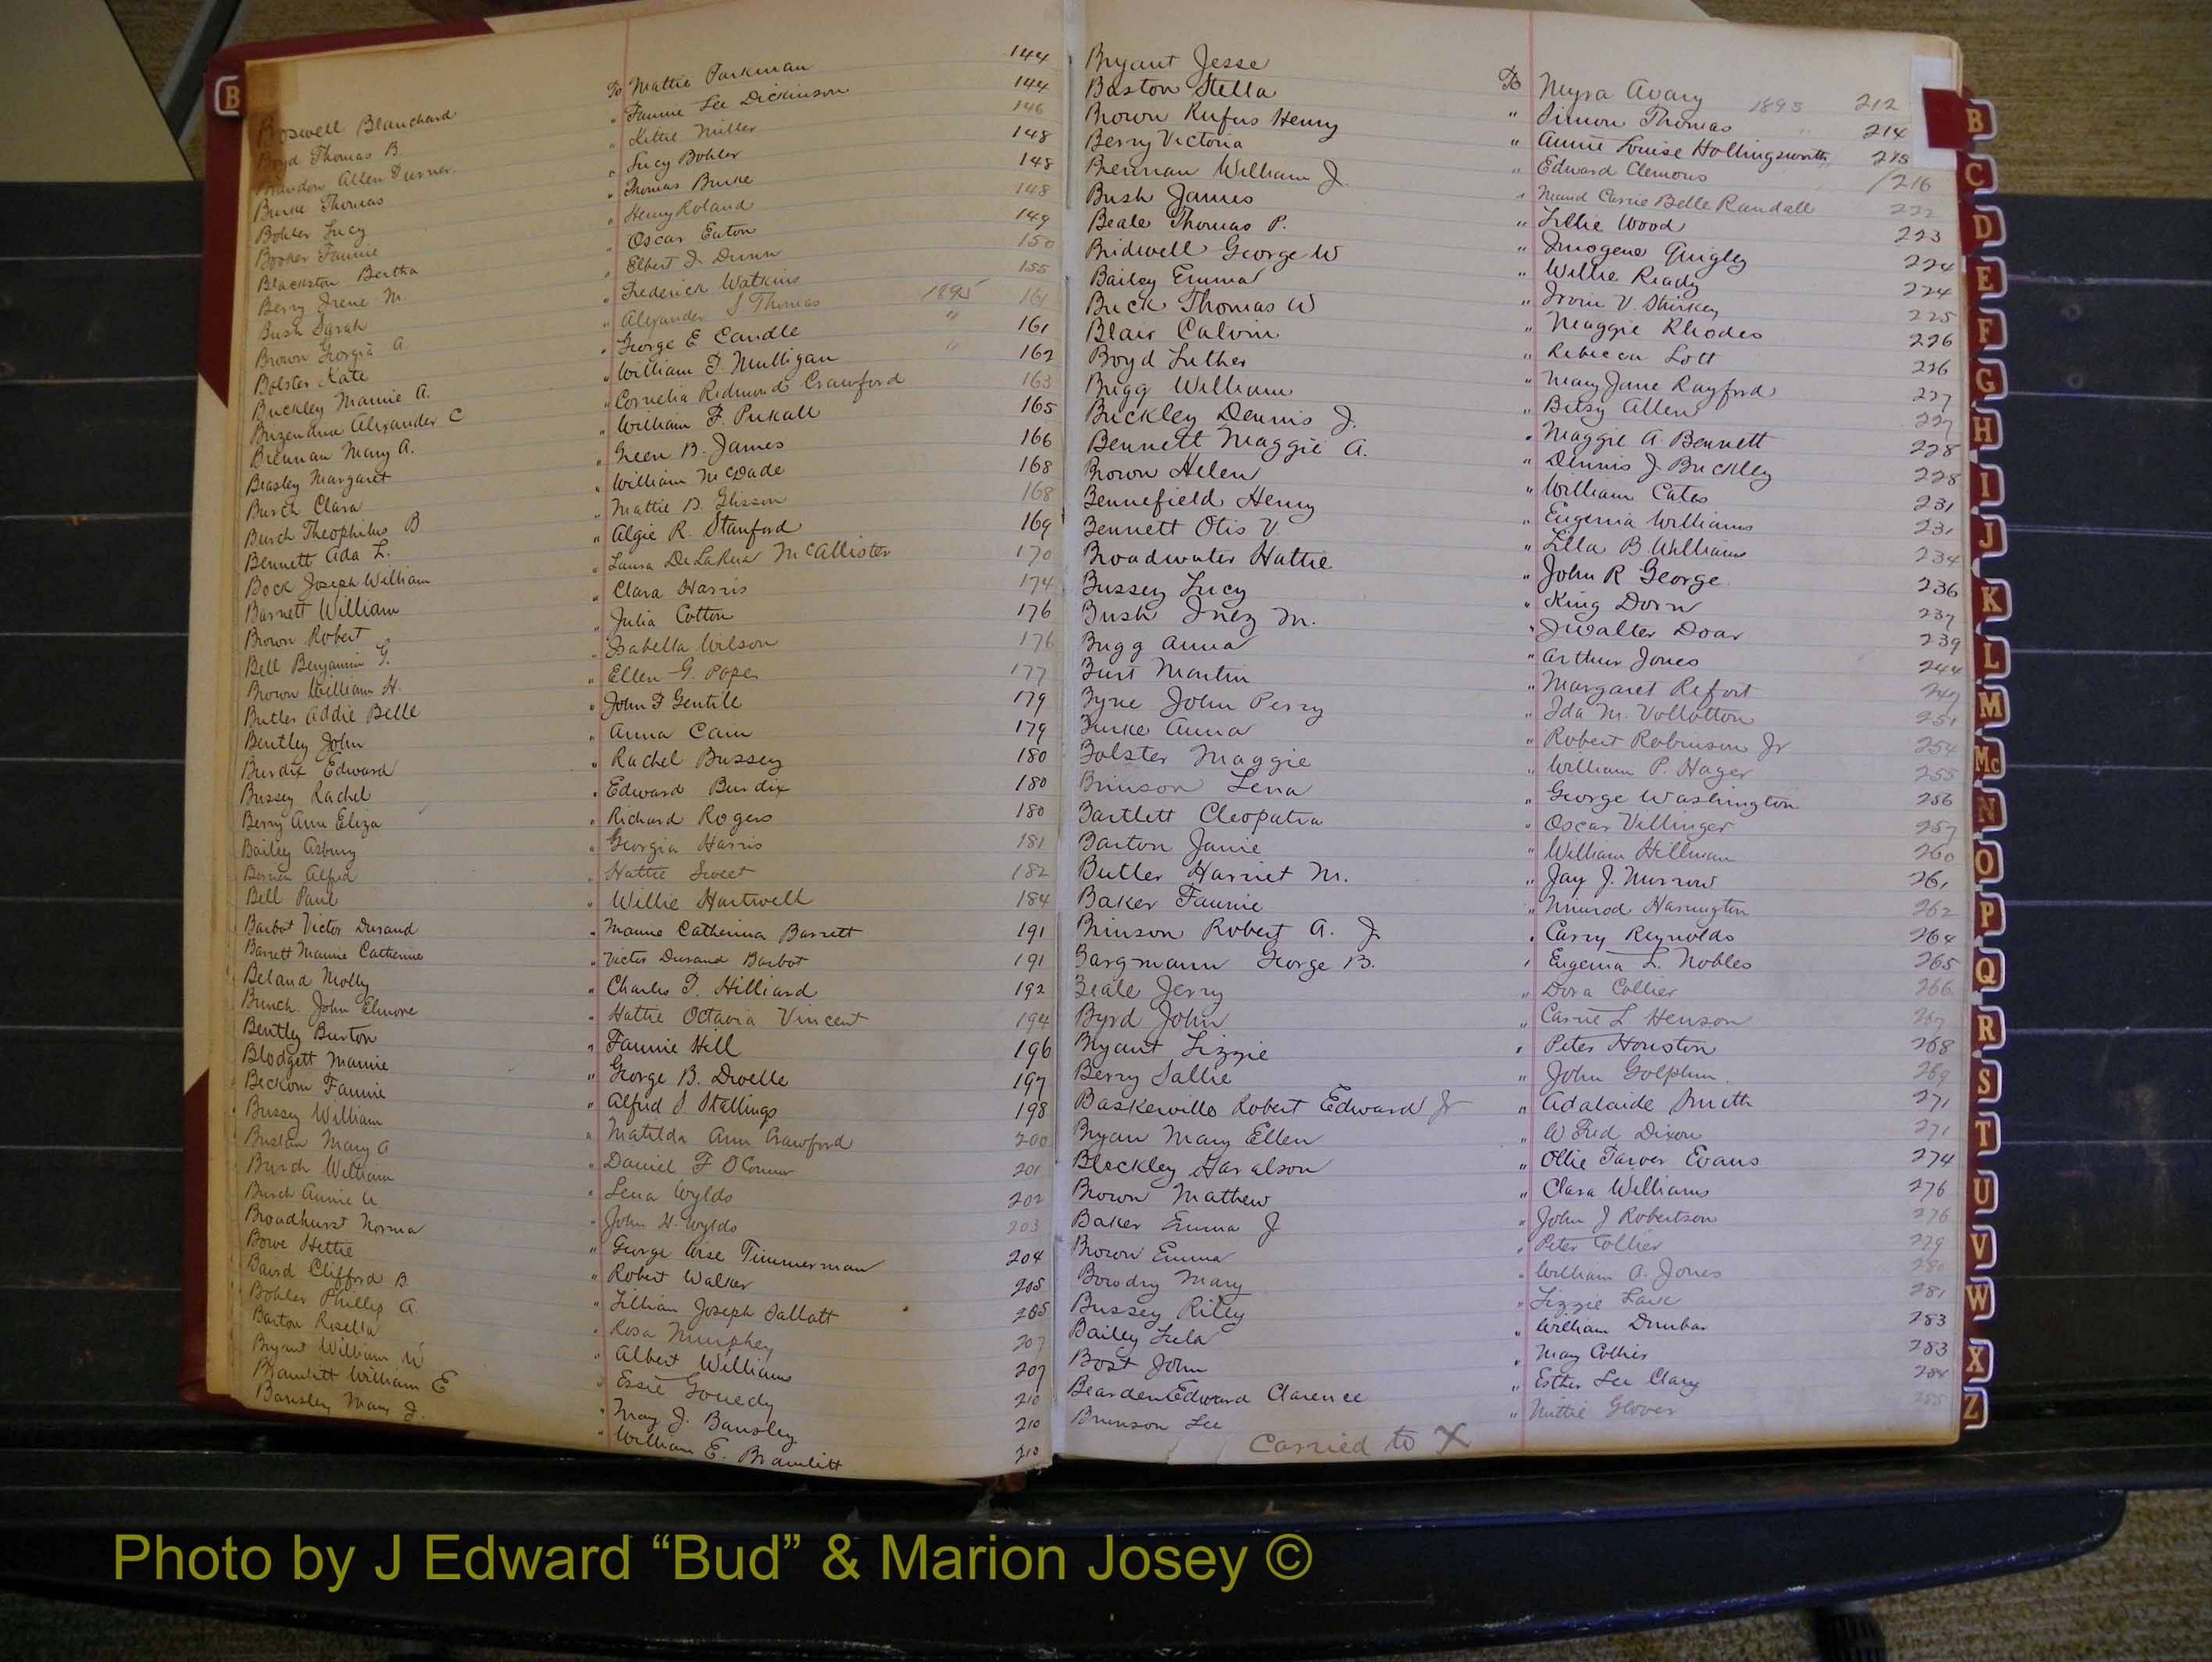 B
Boswell Blanchard To Mattie Parkman 144
Boyd Thomas B. " Fannie Lee Dickinson 144
Brandon Allen Turner. " Kittie Miller 146
Burke Thomas " Lucy Bohler 148
Bohler Lucy " Thomas Burke 148
Booker Fannie " Henry Roland 148
Blackston Bertha " Oscar Eaton 149
Berry Irene M. " Elbert J. Dunn 150
Bush Sarah " Frederick Watkins 155
Brown Georgia A. " Alexander S. Thomas 1895 161
Bolster Kate " George E Candle " 161
Buckley Mamie A. " William D. Mulligan " 162
Alexander C " Cornelia Redmond Crawford 163
Brennan Mary A. " William F. 165
Beasley Margaret " Green B. James 166
Burch Clara " William McDade 168
Burch Theophilus B " Mattie B. Glisson 168
Bennett Ada L. " Algie R. Stanford 169
Bock Joseph William " Laura DeLaRua McCallister 170
Barnett William " Clara Harris 174
Brown Robert " Julia Cotton 176
Bell Benjamin G. " Isabella Wilson 176
Brown William H. " Ellen G. Pope 177
Butler Addie Belle " John F Gentile 179
Bentley John " Anna Cain 179
Burdix Edward " Rachel Bussey 180
Bussey Rachel " Edward Burdix 180
Berry Ann Eliza " Richard Rogers 180
Bailey Asbury " Georgia Harris 181
Alfred " Hattie Sweet 182
Bell Paul " Willie Hartwell 184
Barbot Victor Durand " Mamie Catherina Barrett 191
Barrett Mamie Catherine " Victor Durand Barbot 191
Beland Molly " Charles T. Hilliard 192
Bunch John Elmore " Hattie Octavia Vincent 194
Bentley Burton " Fannie Hill 196
Blodgett Mamie " George B. Dwelle 197
Beckom Fannie " Alfred S Stallings 198
Bussey William " Matilda Ann Crawford 200
Mary A " Daniel F OConnor 201
Burch William " Lena Wylds 202
Burch Annie U. " John H. Wylds 203
Broadhurst Norma " George Wise Timmerman 204
Bowe Hettie " Robert Walker 205
Baird Clifford B. " Lillian Joseph Sallott 205
Bohler Phillip A. " Rosa Murphey 207
Barton Rosella " Albert Williams 207
Bryant William W " Essie Gouedy 210
Bramlitt William E " May J. Bansley 210
Bansley May J. " William E. Bramlitt 210
Bryant Jesse To Myra Avary 1893 212
Baston Stella " Simon Thomas " 214
Brown Rufus Henry " Annie Louise Hollingsworth 215
Berry Victoria " Edward Clemons 216
Brennan William J. " Maud Carrie Belle Randall 222
Bush James " Lillie Wood 223
Beale Thomas P. " Imogene Quigley 224
Bridwell George W " Willie Ready 224
Bailey Emma " Irvin V. Shirkey 225
Buck Thomas W " Maggie Rhodes 226
Blair Calvin " Rebecca Lott 226
Boyd Luther " Mary Jane Rayford 227
Brigg William " Betsy Allen 227
Buckley Dennis J. " Maggie A Bennett 228
Bennett Maggie A. " Dennis J Buckley 228
Brown Helen " William Cates 231
Bennefield Henry " Eugenia Williams 231
Bennett Otis V. " Lilla B. Williams 234
Broadwater Hattie " John R George 236
Bussey Lucy " King Dorn 237
Bush Inez M. " J Walter Doar 239
Bugg Anna " Arthur Jones 244
Burt Martin " Margaret Refort 247
Byne John Perry " Ida M. Vollotton 251
Burke Anna " Robert Robinson Jr 254
Bolster Maggie " William P. Hager 255
Brinson Lena " George Washington 256
Bartlett Cleopatra " Oscar Villinger 257
Barton Janie " William Hillman 260
Butler Harriet M. " Jay J. Morrow 261
Baker Fannie " Nimrod Harrington 262
Brinson Robert A. Jr " Carry Reynolds 264
Bargmann George B. " Eugenia L. Nobles 265
Beale Jerry " Dora Collier 266
Byrd John " Carrie L Henson 267
Bryant Lizzie " Peter Houston 268
Berry Sallie " John Golphin 269
Baskerville Robert Edward Jr " Adalaide Smith 271
Bryan Mary Ellen " W Fred Dixon 271
Bleckley Haralson " Ollie Tarver Evans 274
Brown Mathew " Clara Williams 276
Baker Emma J " John J Robertson 276
Brown Emma " Peter Collier 279
Bowdry Mary " William A. Jones 280
Bussey Riley " Lizzie Lark 281
Bailey Lula " William Dunbar 283
Bost John " May Collier 283
Bearden Edward Clarence " Esther Lee Clary 284
Brunson Lee " Mittie Glover 285
Carried to X
B
C
D
E
F
G
H
I
J
K
L
M
Mc
N
O
P
Q
R
S
T
U
V
W
X
Z
Photo by J Edward “Bud” & Marion Josey ©